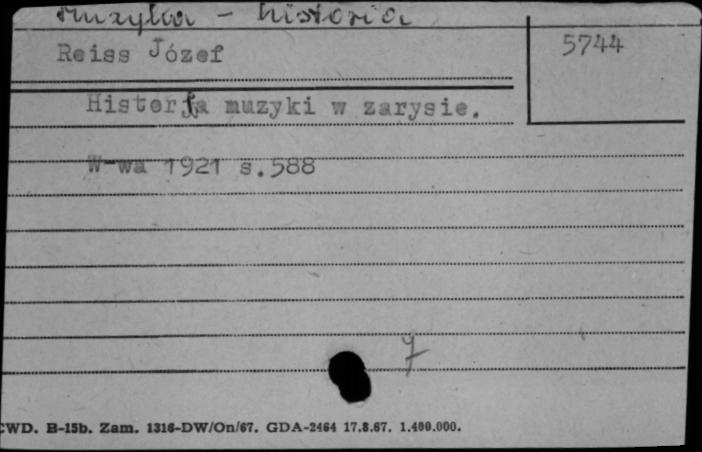 muzyka - historia
Reiss Józef
5744
Historja muzyki w zarysie.
W-wa 1921 s.588
7
CWD. B-15b. Zam. 1316-DW/On/67. GDA-2464 17.8.67. 1.400.000.